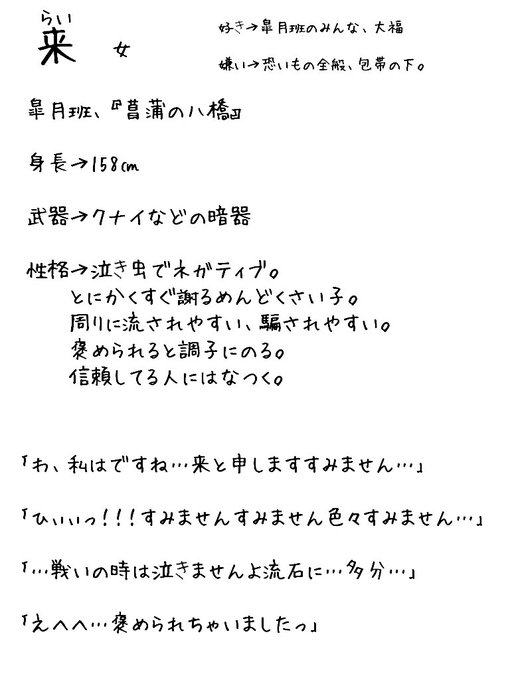 らい
来 女
好き→皐月班のみんな、大福
嫌い→恐いもの全般、包帯の下。
皐月班、『菖蒲の八橋』
身長→158cm
武器→クナイなどの暗器
性格→泣き虫でネガティブ。
とにかくすぐ謝るめんどくさい子。
周りに流されやすい、騙されやすい。
褒められると調子にのる。
信頼してる人にはなつく。
「わ、私はですね…来と申しますすみません…」
「ひぃぃっ!!!すみませんすみません色々すみません…」
「…戦いの時は泣きませんよ流石に…多分…」
「えへへ…褒められちゃいましたっ」